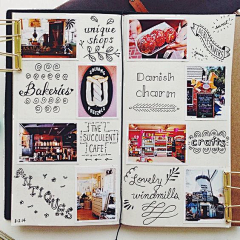 unique
shops
Bakeries
THE
SUCCULENT
CAFE
Antiques
Danish
charm
crafts
Lovely
windmills